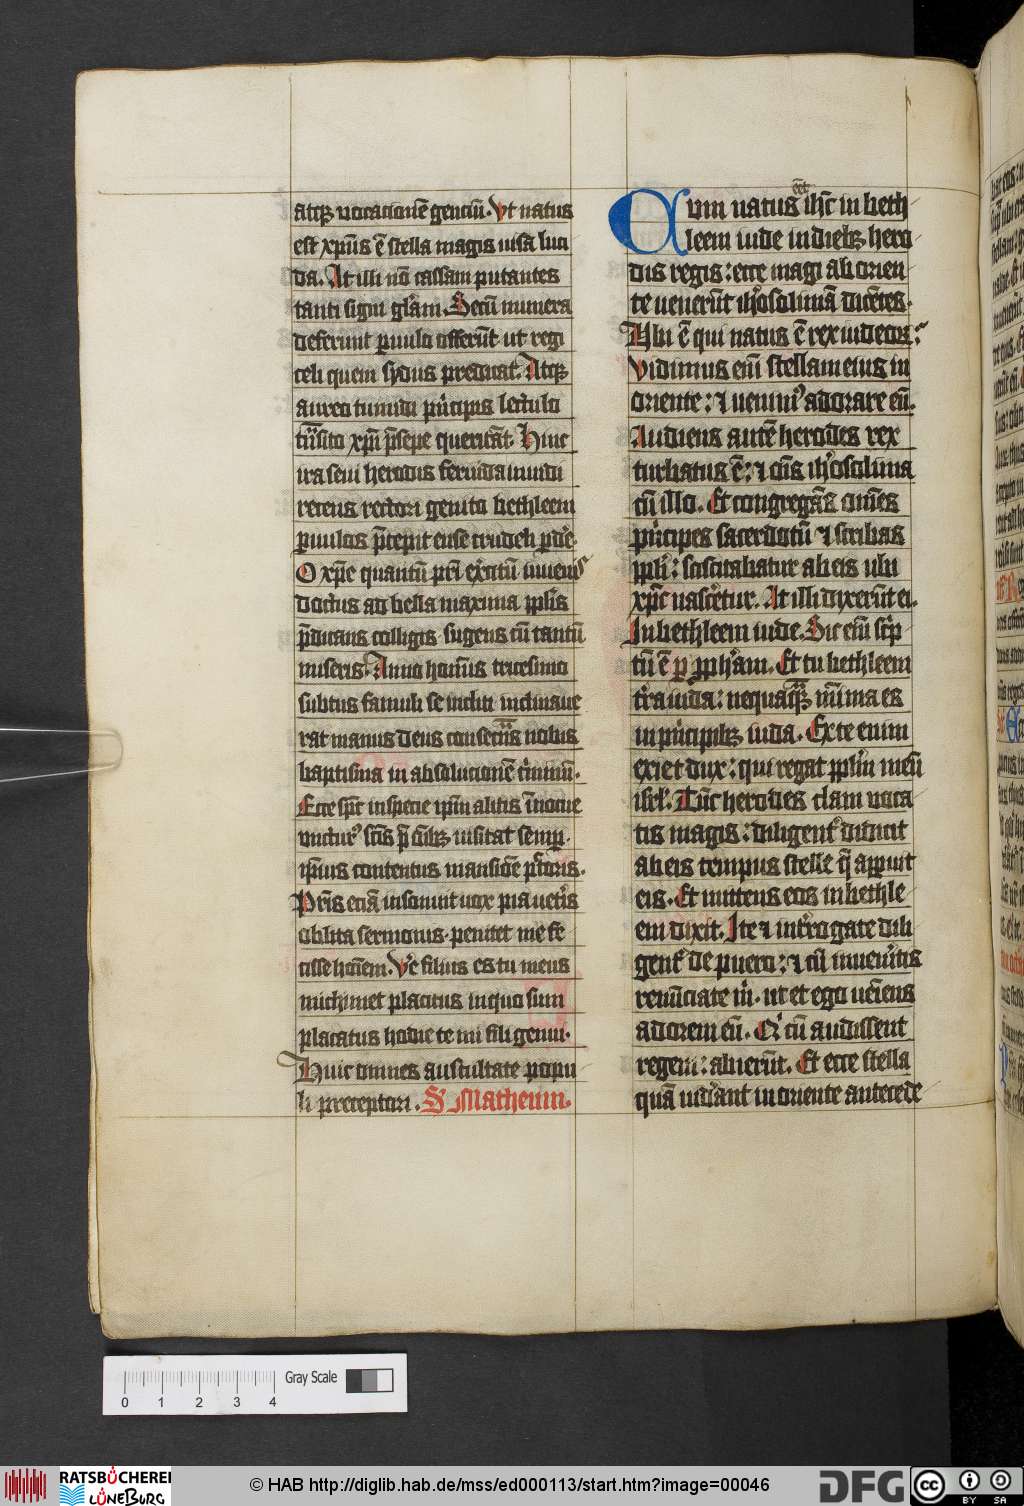 atq₃ vocacionē genciū. Vt natus
est xp̄us ē stella magis visa luci
da. At illi nō cassam putantes
tanti signi glam̄. Secū munera
deferunt puulo offerūt ut regi
celi quem sydus predicat. Atq₃
aureo tumidi prīcipis lectulo
trāsito xp̄m p̄sepe queritāt. Huic
ira seui herodis feruida inuidi
recens rectori genito bethleem
puulos p̄cepit ense crudeli pde.
O xp̄e quantū pr̄i exercitū iuuenis
doctus ad bella maxima ppl̄is
p̄dicans colligis sugens cū tantū
miseris. Anno hoīnis tricesimo
subtus famuli se incliti inclinaue
rat manus deus consecrās nobis
baptisma in absolucionē crīminū.
Ecce sp̄c in specie ip̄m alitis īnocue
uncturꝰ scīs p̄ oīb₃ uisitat semp.
ip̄ius contentus mansiōe pectoris.
Pr̄is eciā insonuit uox pia ueteris
oblita sermonis. penitet me fe
cisse hoīem. Ve filius es tu meus
michimet placitus in quo sum
placatus hodie te mi fili genui.
Huic omnes auscultate popu
li preceptori. S. Matheum.
Cum natus eēt ih̄c in beth
leem iude in dieb₃ hero
dis regis: ecce magi ab orien
te uenerūt ih̄osolimā dicētes.
Vbi ē qui natus ē rex iudeoꝝ:
Vidimus em̄ stellam eius in
oriente: ⁊ uenimꝰ adorare eū.
Audiens autē herodes rex
turbatus ē: ⁊ oīs ih̄osolima
cū illo. Et congregās om̄es
prīcipes sacerdotū ⁊ scribas
ppl̄i: sciscitabatur ab eis ubi
xp̄c nascetur. At illi dixerūt ei.
In bethleem iude. Sic em̄ scp̄
tū ē p pph̄am. Et tu bethleem
tr̄a iuda: nequaq̄₃ mīma es
in prīcipib₃ iuda. Ex te enim
exiet dux: qui regat ppl̄m meū
isrl̄. Tūc herodes clam voca
tis magis: diligentꝰ didicit
ab eis tempus stelle q̄ apparuit
eis. Et mittens eos in bethle
em dixit. Ite ⁊ int̄rogate dili
gentꝰ de puero: ⁊ cū inueneritis
renūciate m̄. ut et ego ueīens
adorem eū. Qi cū audissent
regem: abierūt. Et ecce stella
quā uidant in oriente antecede
0 1 2 3 4
Gray Scale
RATSBÜCHEREI
LÜNEBURG
© HAB http://diglib.hab.de/mss/ed000113/start.htm?image=00046
DFG
cc
BY SA